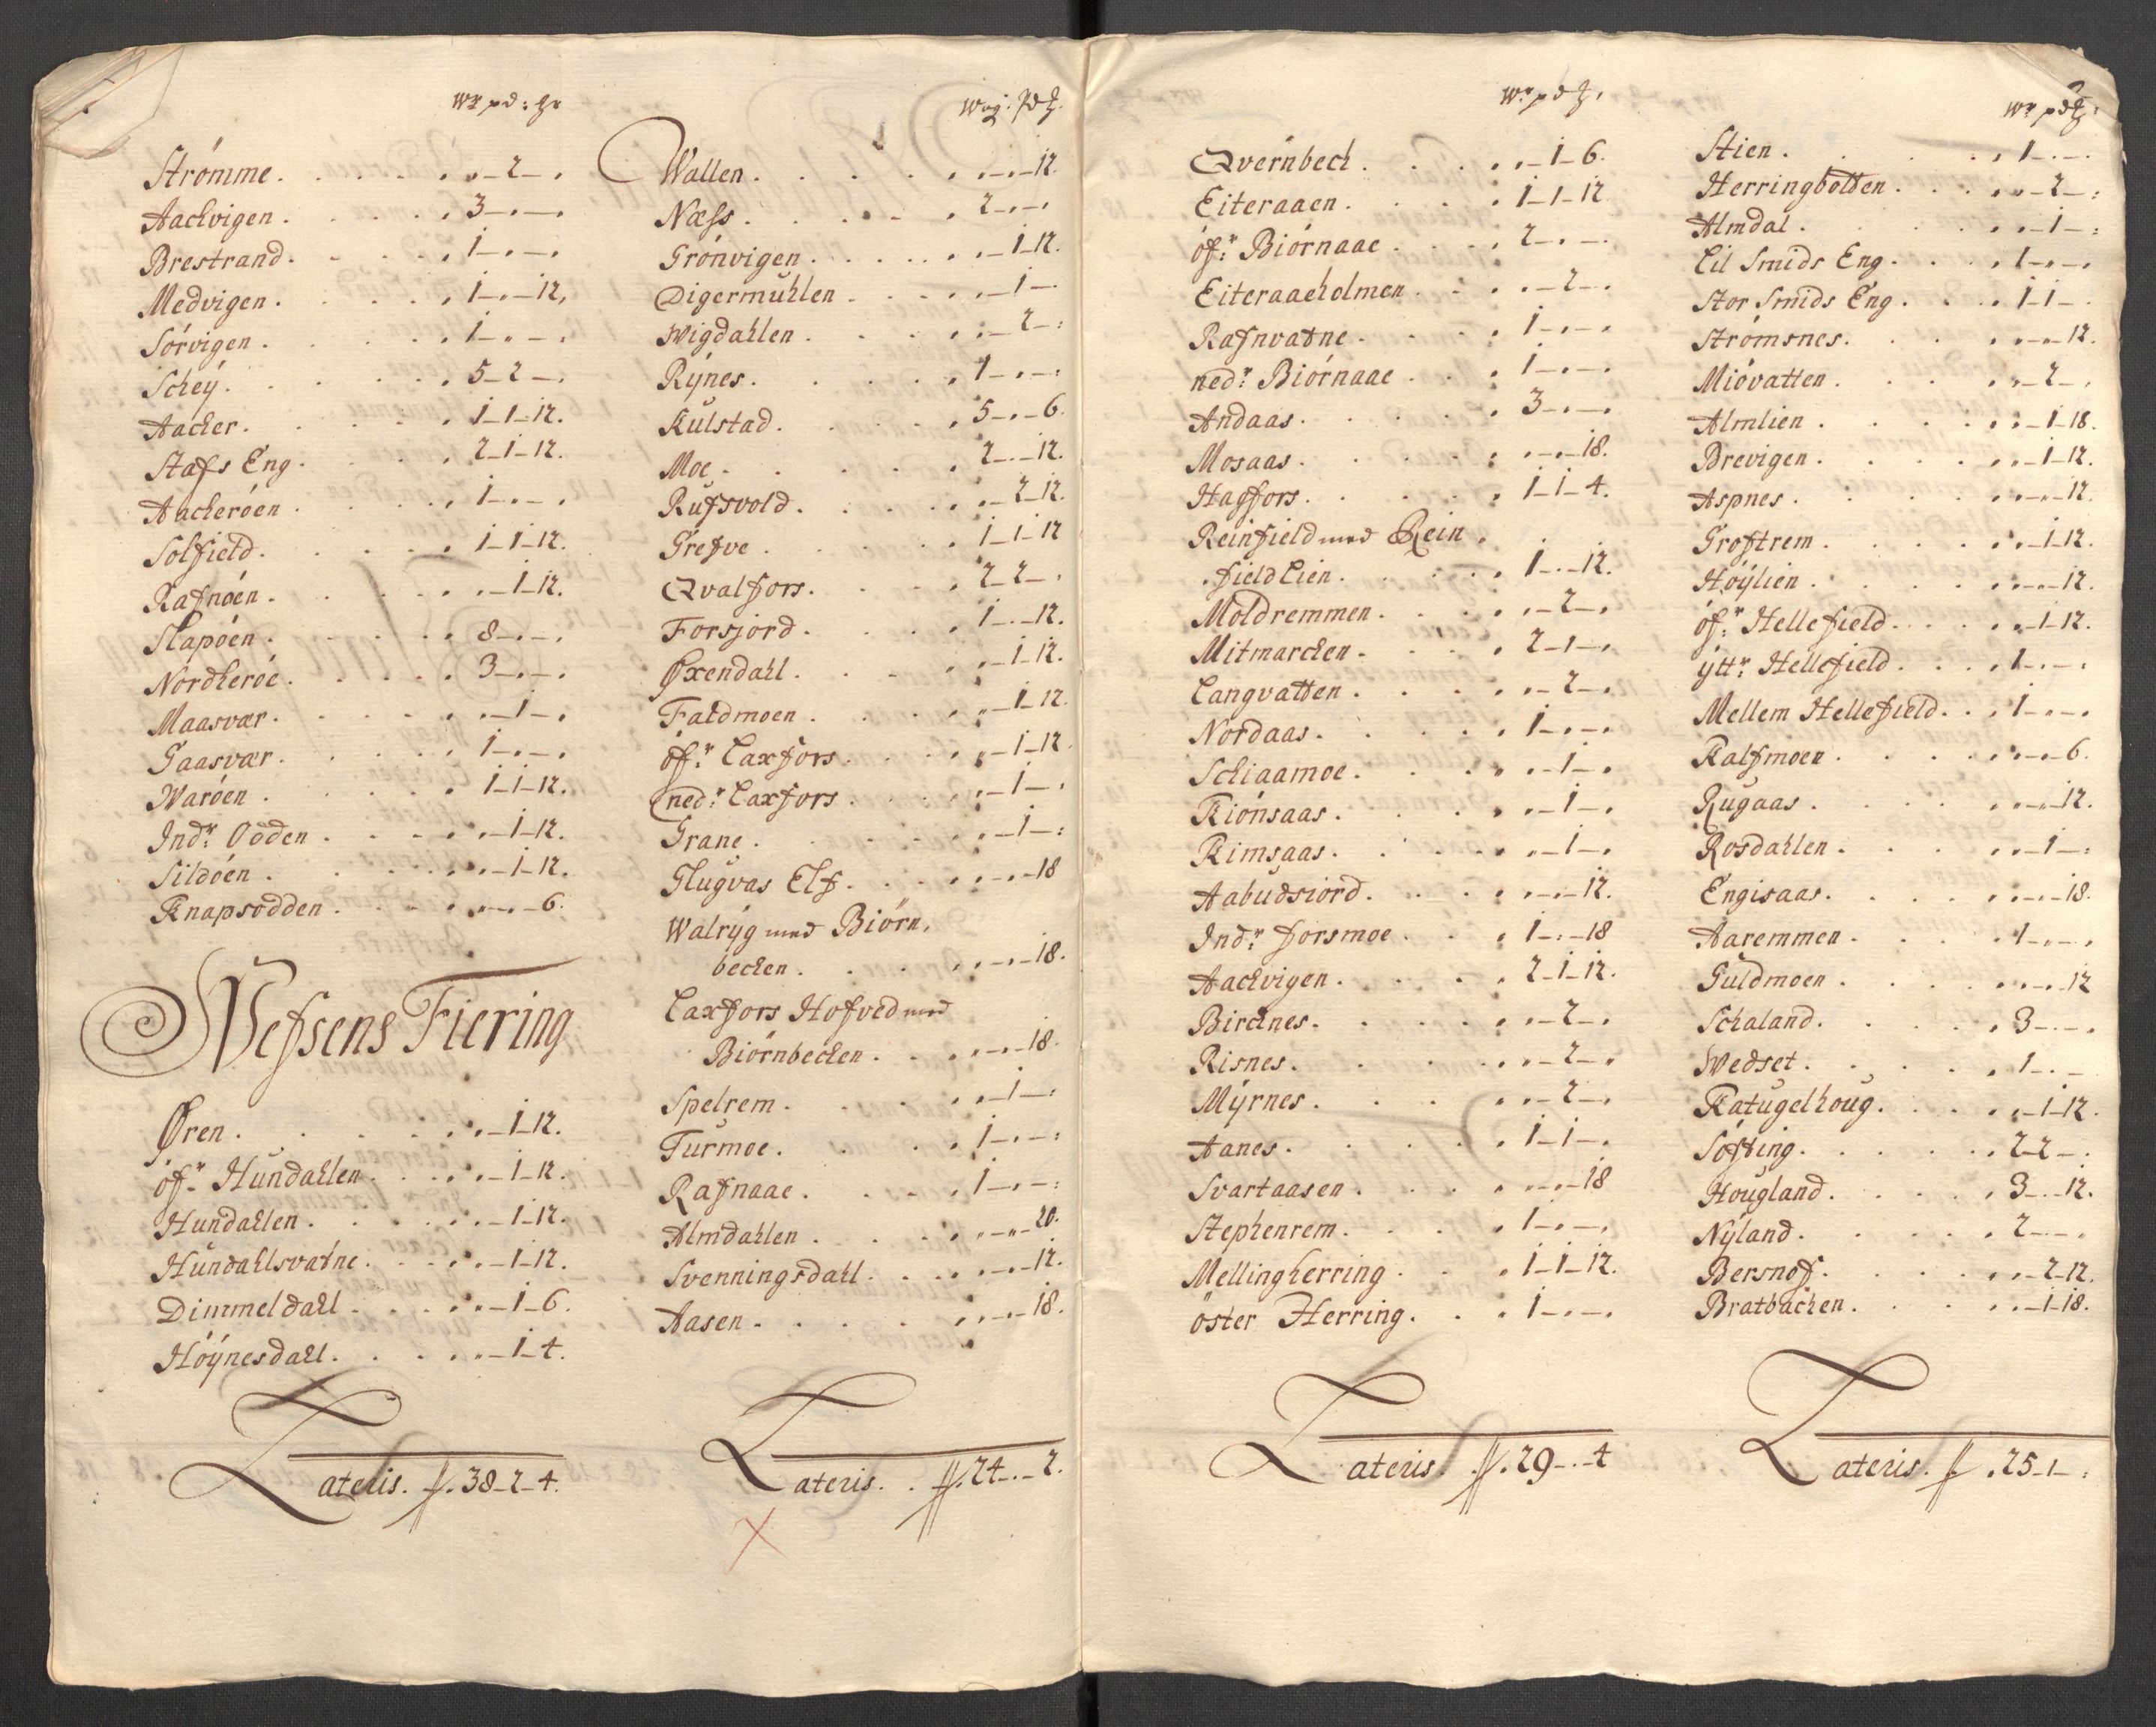 Wr pd: ℔r
Strömme . . . . „-2-„
Aachvigen . . . . 3-„-„
Brestrand . . . . 1-„-„
Medvigen . . . . 1-„-12.
Sörvigen . . . . 1-„-„
Scheÿ . . . . 5-2-„
Aacher . . . . 1-1-12.
Stafs Eng . . . . 2-1-12.
Aacheröen . . . . 1-„-„
Solfield . . . . 1-1-12.
Rafnöen . . . . „-1-12.
Slapöen . . . . 8-„-„
Nordheröe . . . . 3-„-„
Maasvær . . . . „-1-„
Gaasvær . . . . 1-„-„
Waröen . . . . 1-1-12.
Indr: Odden . . . . „-1-12.
Sildöen . . . . „-1-12.
Knapsodden . . . . „-„-6.
Wefsens Fiering
Øren . . . . „-1-12.
öfr: Hundahlen . . . . „-1-12.
Hundahlen . . . . „-1-12.
Hundahlsvatne . . . . „-1-12.
Dimmeldahl . . . . „-1-6.
Höÿnesdahl . . . . „-1-4.
Lateris . ∫∫. 38-2-4.
Wog. Pd ℔.
Wallen . . . . „-„-12.
Næss . . . . 2-„-„
Grönvigen . . . . „-1-12.
Digermuhlen . . . . „-1-
Wigdahlen . . . . „-2-:
Rÿnes . . . . 1-„-:
Kulstad . . . . 5-„-6.
Moe . . . . 2-„-12.
Rufsvold . . . . „-2-12.
Grefve . . . . 1-1-12
Qvalfors . . . . 2-2-„
Forsjord . . . . 1-„-12.
Øxendahl . . . . „-1-12.
Faldmoen . . . . „-1-12.
öfr: Laxfors . . . . „-1-12.
nedr: Laxfors . . . . „-1-„
Grane . . . . „-1-:
Glugvas Elf . . . . „-„-18
Walrÿg med Biörn,
becken . . . . „-„-18.
Laxfors Hofved med
Biörnbecken . . . . „-„-18.
Spelrem . . . . „-1-:
Turmoe . . . . 1-„-:
Rafnaae . . . . 1-„-:
Almdahlen . . . . „-„-20.
Svenningsdahl . . . . „-„-12.
Aasen . . . . „-„-18.
Lateris . . ∫∫. 24-„-2.
Wr pd ℔.
Qvernbech . . . . „-1-6.
Eiteraaen . . . . 1-1-12
öfr: Biörnaae . . . . 2-„-„
Eiteraaeholmen . . . . „-2-„
Rafnvatne . . . . 1-„-„
nedr: Biörnaae . . . . 1-„-„
Andaas . . . . 3-„-„
Mosaas . . . . „-„-18.
Hagfors . . . . 1-1-4.
Reinfield med Rein
field Lien . . . . 1-„-12.
Moldremmen . . . . „-2-„
Mitmarchen . . . . 2-1-„
Langvatten . . . . „-2-„
Nordaas . . . . 1-„-„
Schiaamoe . . . . „-1-„
Kiönsaas . . . . „-1-„
Kimsaas . . . . „-1-„
Aabudsiord . . . . „-„-12.
Indr: forsmoe . . . . 1-„-18
Aachvigen . . . . 2-1-12.
Birchnes . . . . „-2-„
Risnes . . . . „-2-„
Mÿrnes . . . . „-2-„
Aanes . . . . 1-1-„
Svartaasen . . . . „-„-18
Stephenrem . . . . 1-„-„
Mellingherring . . . . 1-1-12.
öster Herring . . . . 1-„-„
Lateris . ∫∫. 29-„-4
Wr pd ℔:
Stien . . . . 1-„-„
Herringbotten . . . . „-2-:
Almdal . . . . „-1-:
Lil Smids Eng . . . . 1-„-„
Stor Smids Eng . . . . 1-1-„
Strömsnes . . . . „-„-12.
Miövatten . . . . „-2-„
Almlien . . . . „-1-18.
Brevigen . . . . „-1-12.
Aspnes . . . . „-„-12.
Groftrem . . . . „-1-12.
Höÿlien . . . . „-„-12.
öfr: Hellefield . . . . „-1-12.
ÿttr: Hellefield . . . . 1-„-„
Mellem Hellefield . . . 1-„-„
Kalfmoen . . . . „-„-6.
Rugaas . . . . „-„-12.
Rosdahlen . . . . „-1-:
Engisaas . . . . „-„-18.
Aaremmen . . . . 1-„-„
Guldmoen . . . . „-„-12
Schaland . . . . 3-„-„
Wedset . . . . 1-„-
Katugelhoug . . . . „-1-12.
Söfting . . . . 2-2-„
Hougland . . . . 3-„-12.
Nÿland . . . . 2-„-„
Bersnof . . . . „-2-12.
Bratbachen . . . . „-1-18.
Lateris . ∫∫. 25-1-: